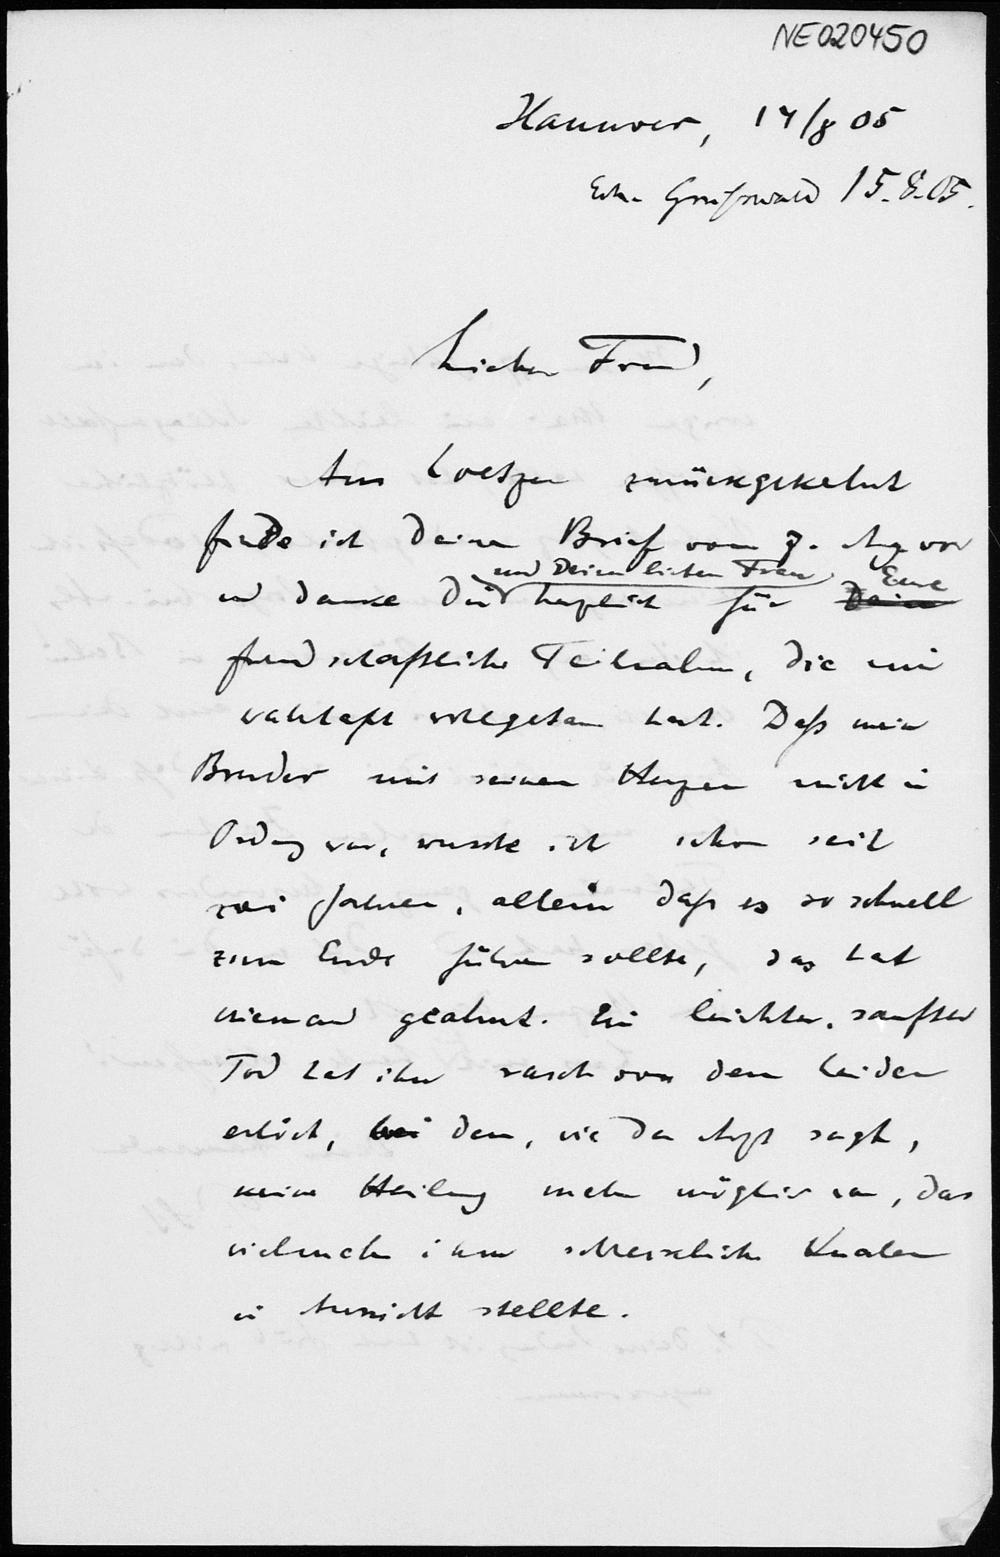 NE020450
Hannover, 14/8 05
Erh. Greifswald 15.8.05.
Lieber Freund,
Aus Loetzen zurückgekehrt
finde ich Deinen Brief vom 7. Aug vor
und Deiner lieben Frau Eure
und danke Dir herzlich für Deine
freundschaftliche Teilnahme, die mir
wahrhaft wohlgetan hat. Daß mein
Bruder mit seinem Herzen nicht in
Ordnung war, wusste ich schon seit
zwei Jahren, allein daß es so schnell
zum Ende führen sollte, das hat
niemand geahnt. Ein leichter, sanfter
Tod hat ihn rasch von dem Leiden
erlöst, bei dem, wie der Arzt sagt,
keine Heilung mehr möglich war, das
vielmehr ihm schreckliche Qualen
in Aussicht stellte.